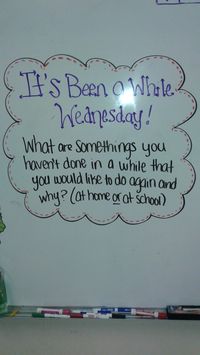 It's Been a While
Wednesday!
What are Somethings you
haven't done in a while that
you would like to do again and
why? (at home or at school)